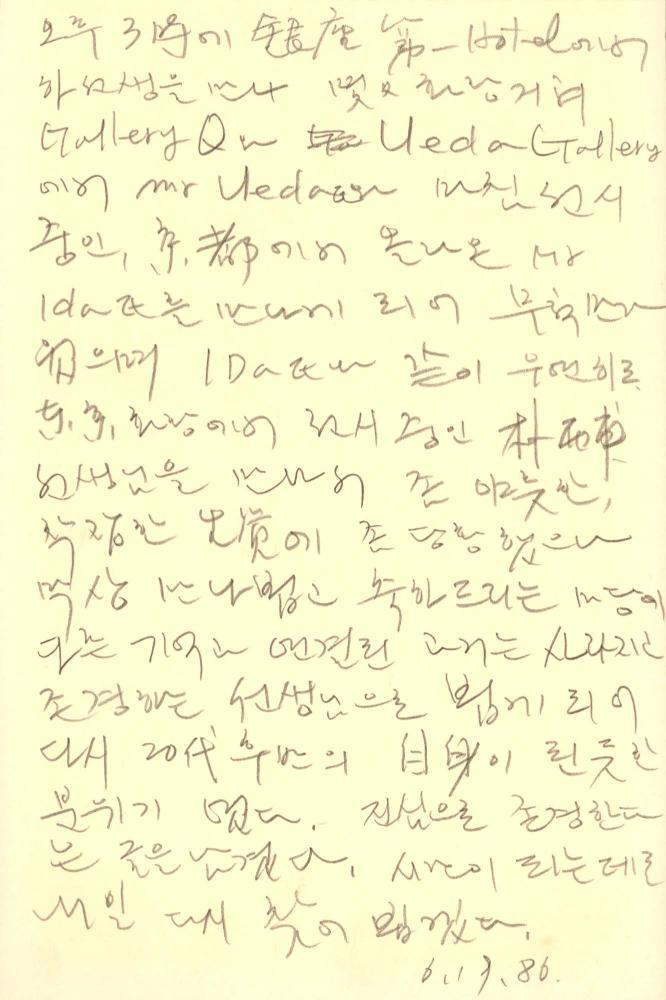 오후 3時에 銀座 第一Hotel에서
하선생을 만나 몇몇 화랑거쳐
Gallery Q Ueda Gallery
에서 mr Ueda 마침 전시
중인, 京都에서 올라온 Mr
Ida 를 만나게 되어
IDa 같이 우연히도
東京화랑에서 전시 중인 朴栖甫
선생님을 만나서 좀 야릇한,
착잡한 좀 당황했으나
막상 만나뵙고 축하드리는 마당에
기억과 연결된 과거는 사라지고
존경하는 선생님으로 뵙게 되어
다시 20代 후반의 自身이 된듯한
분위기 였다. 진심으로 존경한다
는 글을 남겼다. 시간이 되는데로
내일 다시 찾아 뵙겠다.
6.17.86.